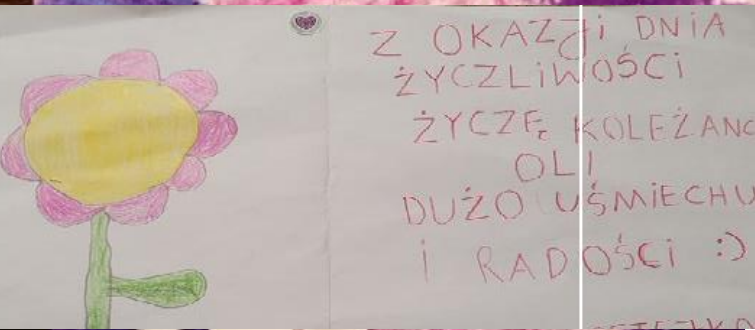 Z OKAZJI DNIA
ŻYCZLIWOŚCI
ŻYCZĘ KOLEŻANC
OLI
DUŻO UŚMIECHU
I RADOŚCI :)